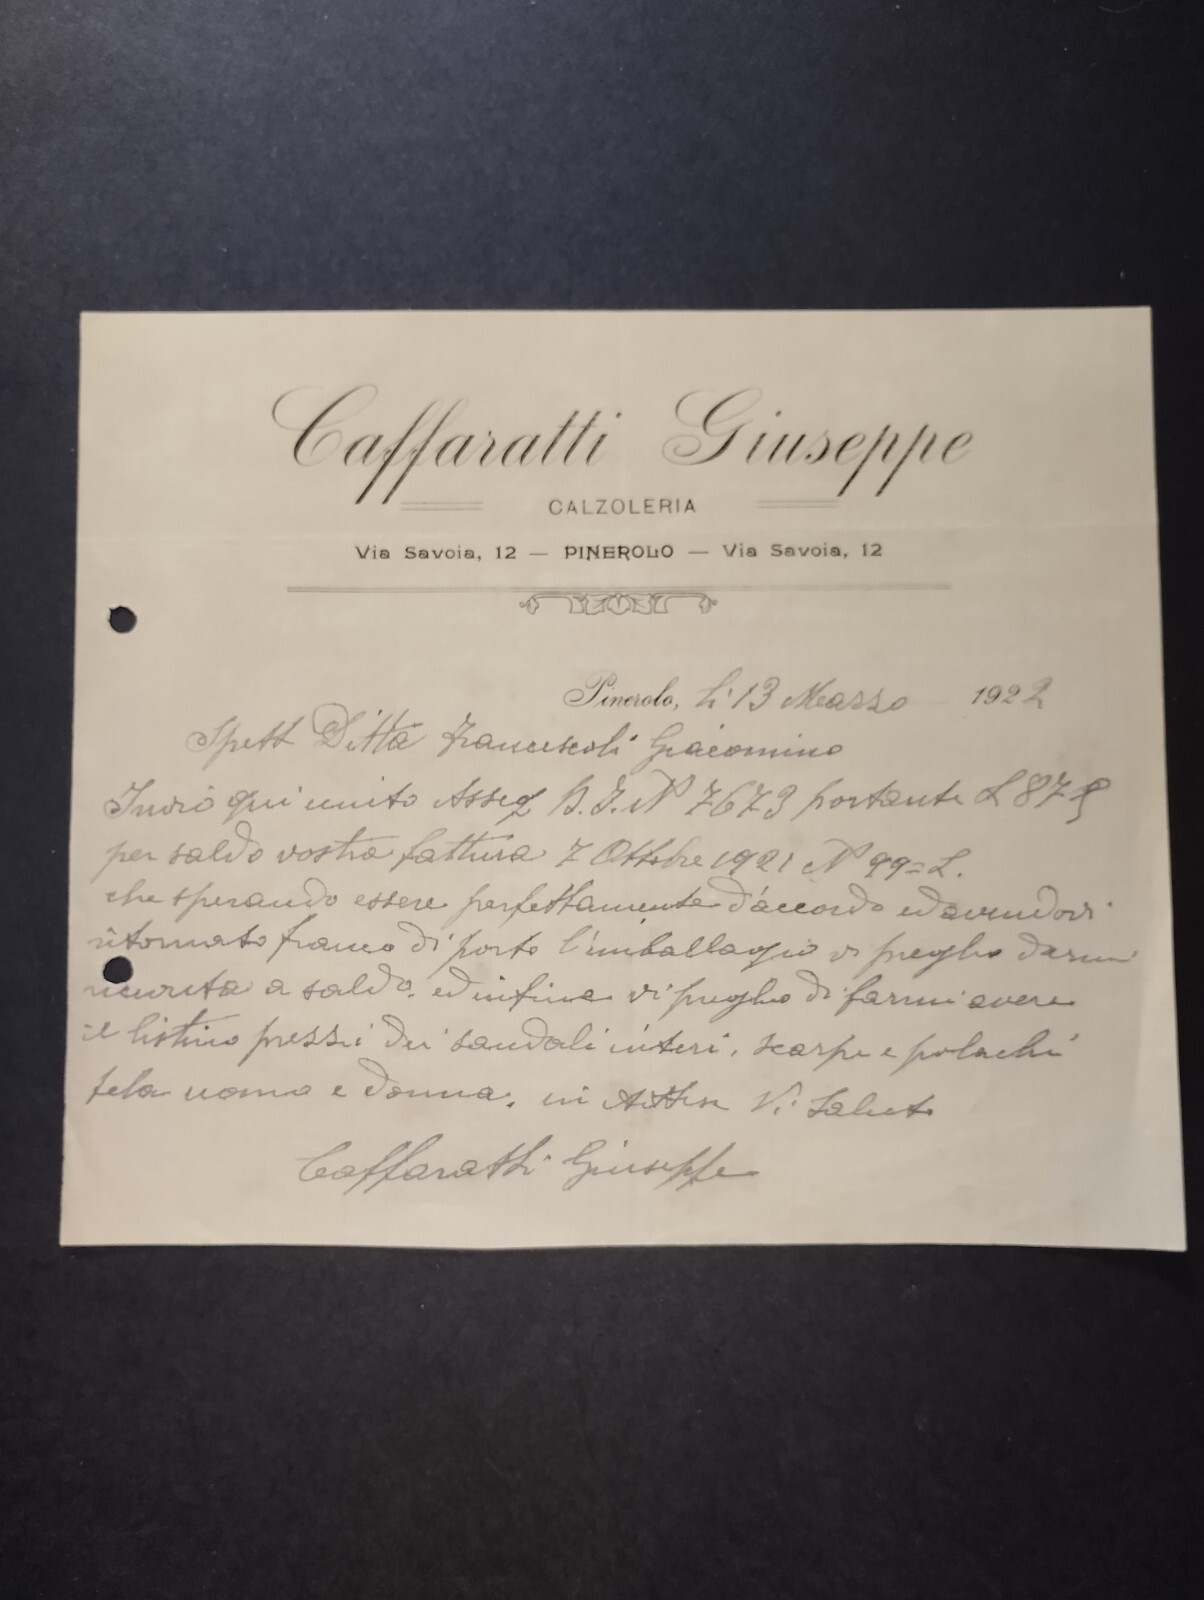 Caffaratti Giuseppe
CALZOLERIA
Via Savoia, 12 — PINEROLO — Via Savoia, 12
Pinerolo, li 13 Marzo 1922
Spett Ditta Francescoli Giacomino
Invio qui unito Asseg B. I. N° 7673 portante L 875
per saldo vostra fattura 7 Ottobre 1921 N° 99 = L.
che sperando essere perfettamente d'accordo ed avendovi
ritornato franco di porto l'imballagio vi preglio darmi
ricevuta a saldo. ed infine vi preglio di farmi avere
il listino prezzi dei sandali interi, scarpe e polachi
tela uomo e donna. in Vi Saluto
Caffaratti Giuseppe